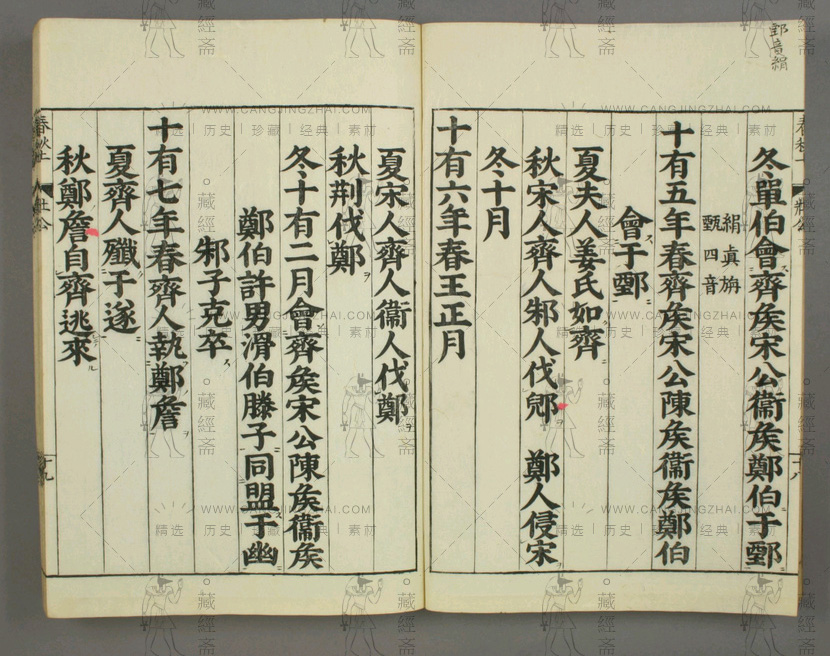 鄄音絹
冬單伯會齊矦宋公衞矦鄭伯于鄄
絹眞旃
甄四音
十有五年春齊矦宋公陳矦衞矦鄭伯
會于鄄
夏夫人姜氏如齊
秋宋人齊人邾人伐郳　鄭人侵宋
冬十月
十有六年春王正月
夏宋人齊人衞人伐鄭
秋荆伐鄭
冬十有二月會齊矦宋公陳矦衞矦
鄭伯許男滑伯滕子同盟于幽
邾子克卒
十有七年春齊人執鄭詹
夏齊人殲于遂
秋鄭詹自齊逃來
春秋上
莊公
十九
WWW.CANGJINGZHAI.COM
精选｜历史｜珍藏｜经典｜素材
藏經斋